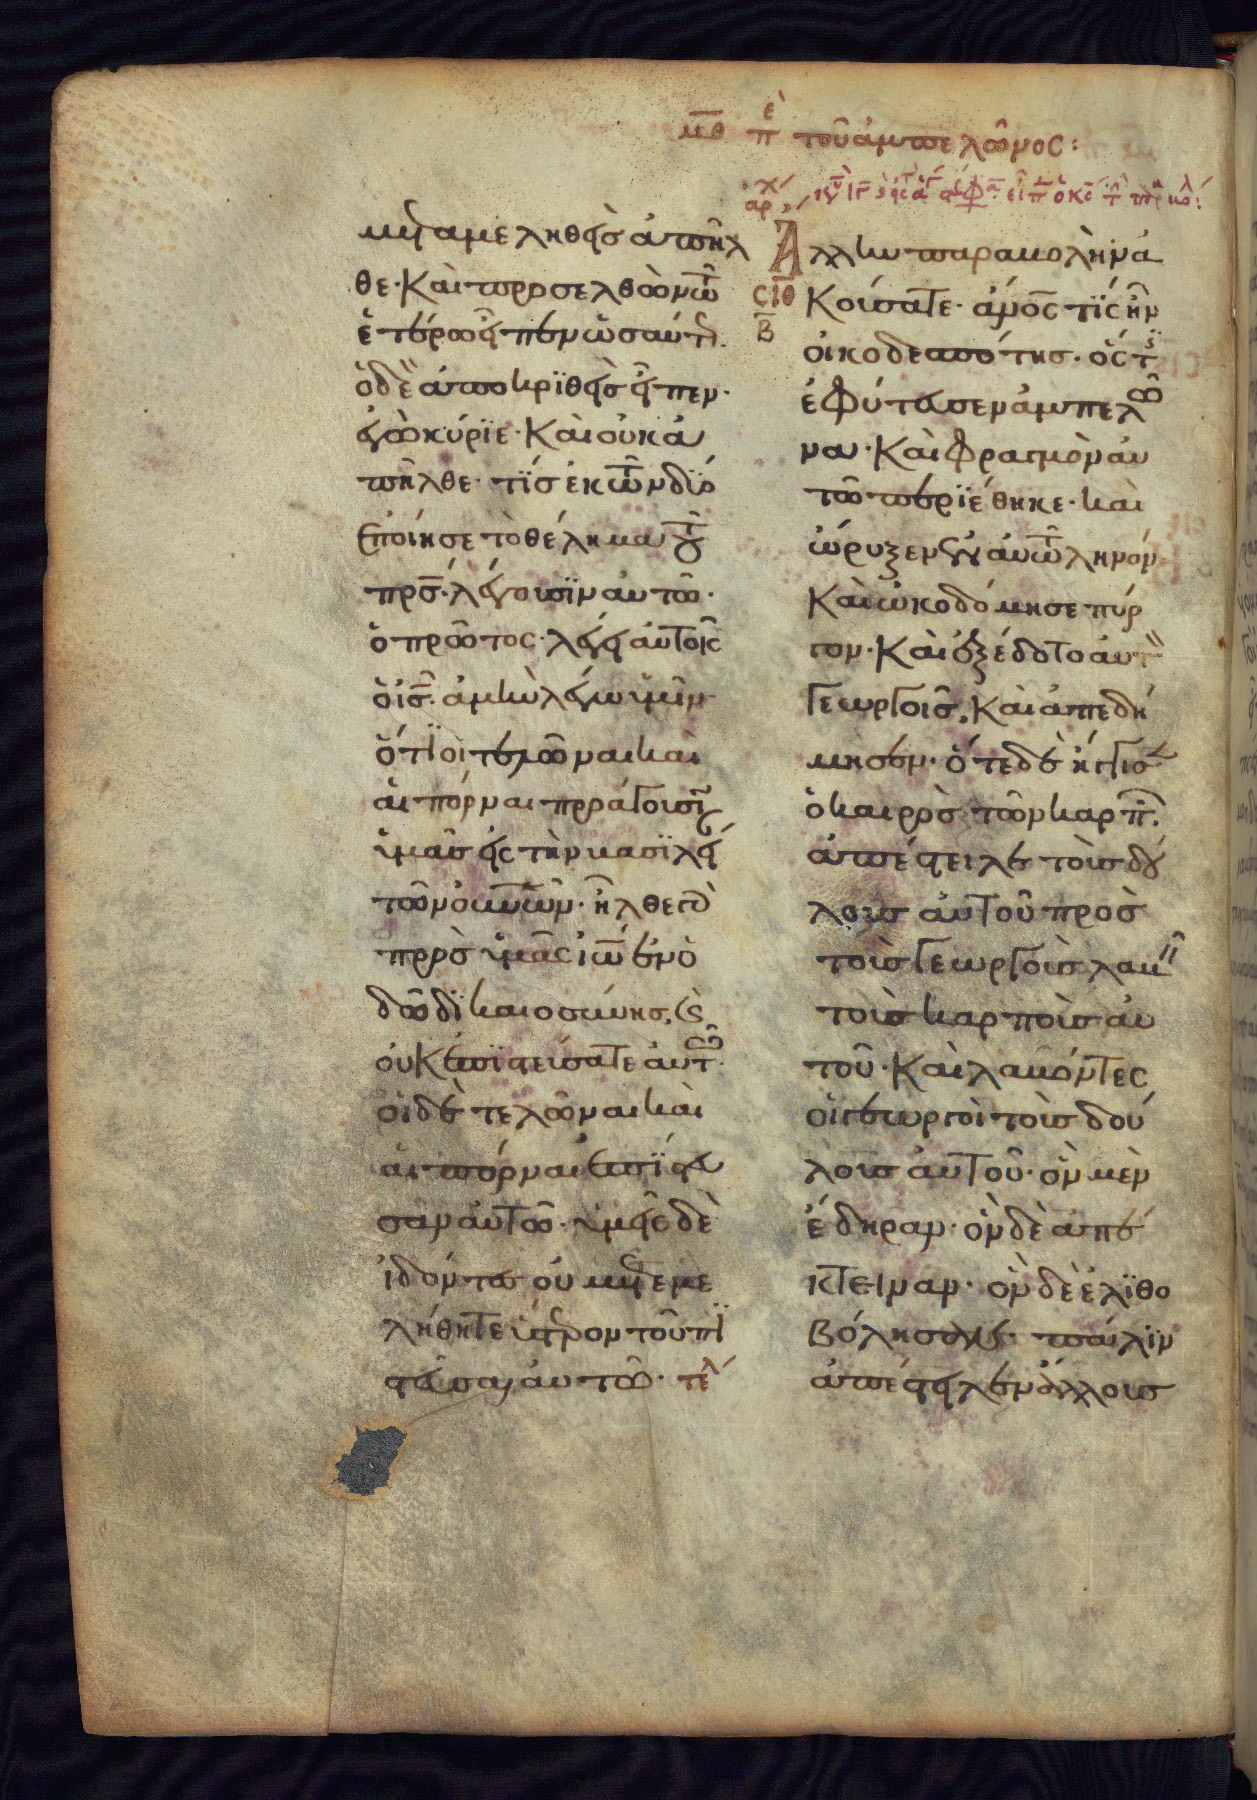 μθ πε τοῦ ἀμπελῶνος:
μεταμεληθεὶς ἀπῆλ
θε· Καὶ προσελθὼν τῶ
ἑτέρω εἶπεν ὡσαύτ
ὁ δὲ ἀποκριθεὶς εἶπεν·
ἐγὼ κύριε· Καὶ οὐκ ἀ
πῆλθε· τίς ἐκ τῶν δύο
ἐποίησε τὸ θέλημα τοῦ
πρς· λέγουσιν αὐτῶ·
ὁ πρῶτος· λέγει αὐτοῖς
ὁ ις· ἀμὴν λέγω ὑμῖν·
ὅτι οἱ τελῶναι καὶ
αἱ πόρναι προάγουσιν
ὑμᾶς εἰς τὴν βασιλεί
τῶν οὐνῶν· ἦλθε γὰρ
πρὸς ὑμᾶς ἰω ἐν ὁ
δῶ δικαιοσύνης, καὶ
οὐκ ἐπιστεύσατε αὐτῶ·
οἱ δὲ τελῶναι καὶ
αἱ πόρναι ἐπίστευ
σαν αὐτῶ· ὑμεῖς δὲ
ἰδόντες οὐ μετεμε
λήθητε ὕστερον τοῦ πι
στεῦσαι αὐτῶ· τέλ
ἀρχ
Ἄλλην παραβολὴν ἀ
σιθ
β
κούσατε· ἀνος τίς ἦν
οἰκοδεσπότης· ὅστις
ἐφύτευσεν ἀμπελῶ
να· Καὶ φραγμὸν αὐ
τῶ περιέθηκε· καὶ
ὤρυξεν ἐν αὐτῶ ληνόν·
Καὶ ὠκοδόμησε πύρ
γον· Καὶ ἐξέδοτο αὐτὸν
γεωργοῖς, Καὶ ἀπεδή
μησεν· ὅτε δὲ ἤγγισεν
ὁ καιρὸς τῶν καρπῶν·
ἀπέστειλε τοὺς δού
λους αὐτοῦ πρὸς
τοὺς γεωργοὺς λαβεῖν
τοὺς καρποὺς αὐ
τοῦ· Καὶ λαβόντες
οἱ γεωργοὶ τοὺς δού
λους αὐτοῦ· ὃν μὲν
ἔδηραν· ὃν δὲ ἀπέ
κτειναν· ὃν δὲ ἐλιθο
βόλησαν· πάλιν
ἀπέστειλεν ἄλλους